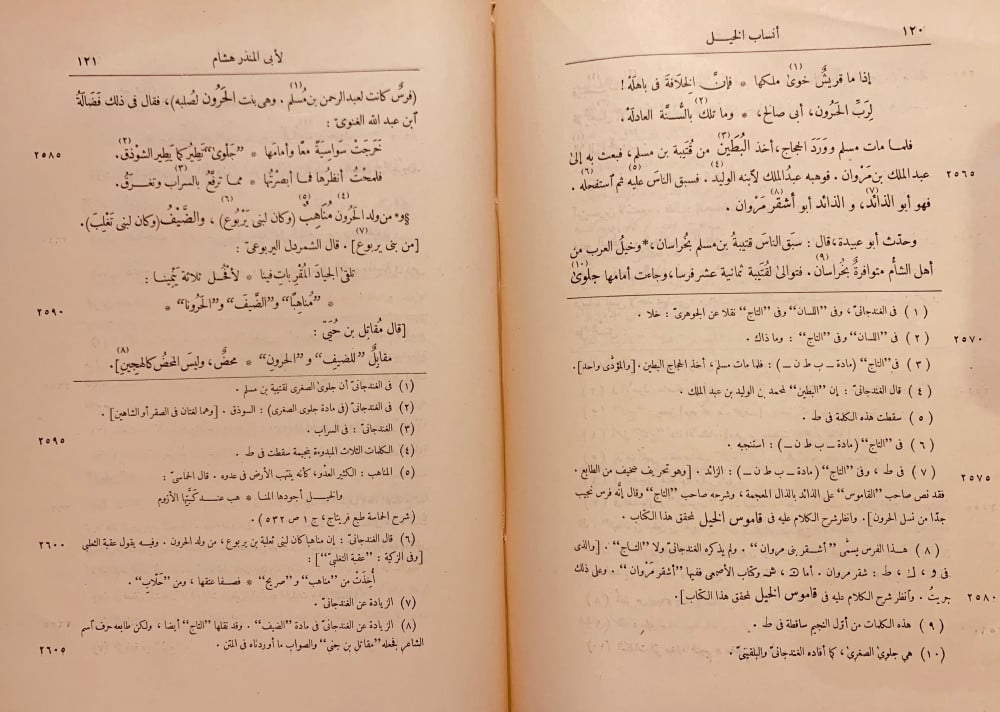 ١٢٠
أنساب الخيــل
إذا ما قريشٌ خوىٰ ملكها * فإنَّ الخلافةَ فى باهلَهْ !
لِرَبّ الحَرُون، أبى صالح، * وما تلك بالسُّنَّة العادلَهْ.
فلما مات مسلم وورَدَ الحجاج، أخذ البُطَين من قُتَيبة بن مسلم، فبعث به إلىٰ
عبد الملك بن مَرْوان. فوهبه عبدُ الملك لآبنه الوليد. فسبق الناسَ عليه ثم آستفحله.
٢٥٦٥
فهو أبو الذائد، و الذائد أبو أشقر مَرْوان.
وحدّث أبو عبيدة، قال: سبَق الناسَ قتيبةُ بن مسلم بخُراسان، *وخيلُ العرب من
أهل الشأم متوافرةٌ بخُراسان. فتوالىٰ لقُتَيبة ثمانيةَ عشرَ فرسا، وجاءت أمامها جلوىٰ
(١) فى الغندجانىّ، وفى "اللسان" وفى "التاج" نقلا عن الجوهرىّ: خلا.
(٢) فى "اللسان" وفى "التاج": وما ذاك.
٢٥٧٠
(٣) فى "التاج" (مادة ــ ب ط ن ــ): فلما مات مسلم، أخذ الحجاج البطين. [والمؤدّى واحد].
(٤) قال الغندجانىّ: إن "البطين" لمحمد بن الوليد بن عبد الملك.
(٥) سقطت هذه الكلمة فى ط.
(٦) فى "التاج" (مادة ــ ب ط ن ــ): استنجبه.
(٧) فى ط، وفى "التاج" (مادة ــ ب ط ن ــ): الزائد. [وهو تحريف سخيف من الطابع.
٢٥٧٥
فقد نص صاحب "القاموس" على الذائد بالذال المعجمة، وشرحه صاحب "التاج" وقال إنه فرس نجيب
جدّا من نسل الحرون]. وآنظر شرح الكلام عليه فى قاموس الخيل لمحقق هذا الكتاب.
(٨) هذا الفرس يسمّى "أشقر بنى مروان". ولم يذكره الغندجانىّ ولا "التاج". [والذى
فى و، ك، ط: شقر مروان. أما ھ، وكتاب الأصمعى ففيها "أشقر مَرْوان". وعلى ذلك
جريتُ. وآنظر شرح الكلام عليه فى قاموس الخيل لمحقق هذا الكتاب].
٢٥٨٠
(٩) هذه الكلمات من أوّل النجيم ساقطة فى ط.
(١٠) هى جلوىٰ الصغرىٰ، كما أفاده الغندجانىّ والبلقينىّ.
لأبى المنذر هشام
١٢١
(فرسٌ كانت لعبد الرحمن بن مُسْلم. وهى بنت الحَرُون لصُلْبه)، فقال فى ذلك فَضَالَةُ
آبن عبد الله الغنوىّ:
خَرجَتْ سَواسِيَةً معًا وأمامَها * "جَلْوىٰ" تَطِيرُ كما يَطِير الشَّوذَق.
٢٥٨٥
فلمحْتُ أنظرُها فما أبصرتُها * مما ترفَّعُ بالسراب وتغرَقُ.
*و* من ولد الحَرُون مُنَاهِبٌ (وكان لبنى يَرْبُوع)، والضَّيْفُ (وكان لبنى تَغْلِب).
[من بنى يربوع]. قال الشمردل اليربوعىّ:
تلقىٰ الجيادَ المُقْرَباتِ فينا * لأفْحُل ثلاثة يَنْمِينا:
* "مُناهِبًا" و"الضَّيفَ" و"الحَرُونا" *
٢٥٩٠
[قال مُقاتِل بن حُيَىّ:
مقابِلٌ "للضيف" و"الحرونِ" * محضٌ، وليسَ المحضُ كالهجينِ].
(١) فى الغندجانىّ أن جلوىٰ الصغرىٰ لقتيبة بن مسلم.
(٢) فى الغندجانىّ (فى مادة جلوى الصغرى): السوذق. [وهما لغتان فى الصقر أو الشاهين].
(٣) الغندجانىّ: فى السراب.
٢٥٩٥
(٤) الكلمات الثلاث المبدوءة بنجيمة سقطت فى ط.
(٥) المناهب: الكثير العدْو، كأنه ينتهب الأرض فى عدوه. قال الحماسىّ:
والخيــل أجودها المنا * هب عنــد كَبَّتها الأزوم
(شرح الحماسة طبع فريتاج، ج ١ ص ٥٣٢).
(٦) قال الغندجانىّ: إن مناهبا كان لبنى ثعلبة بن يربوع، من ولد الحرون. وفيه يقول عقبة الثعلبى
٢٦٠٠
[وفى الزكية: "عقبة التغلبىّ"]:
أُخِذَتْ من "مناهب" و"صريح" * فصفــا عتقها، ومن "حَلّاب".
(٧) الزيادة عن الغندجانىّ.
(٨) الزيادة عن الغندجانىّ فى مادة "الضيف". وقد نقلها "التاج" أيضا، ولكن طابعه حرف آسم
الشاعر فجعله "مقاتل بن جنى" والصواب ما أوردناه فى المتن.
٢٦٠٥